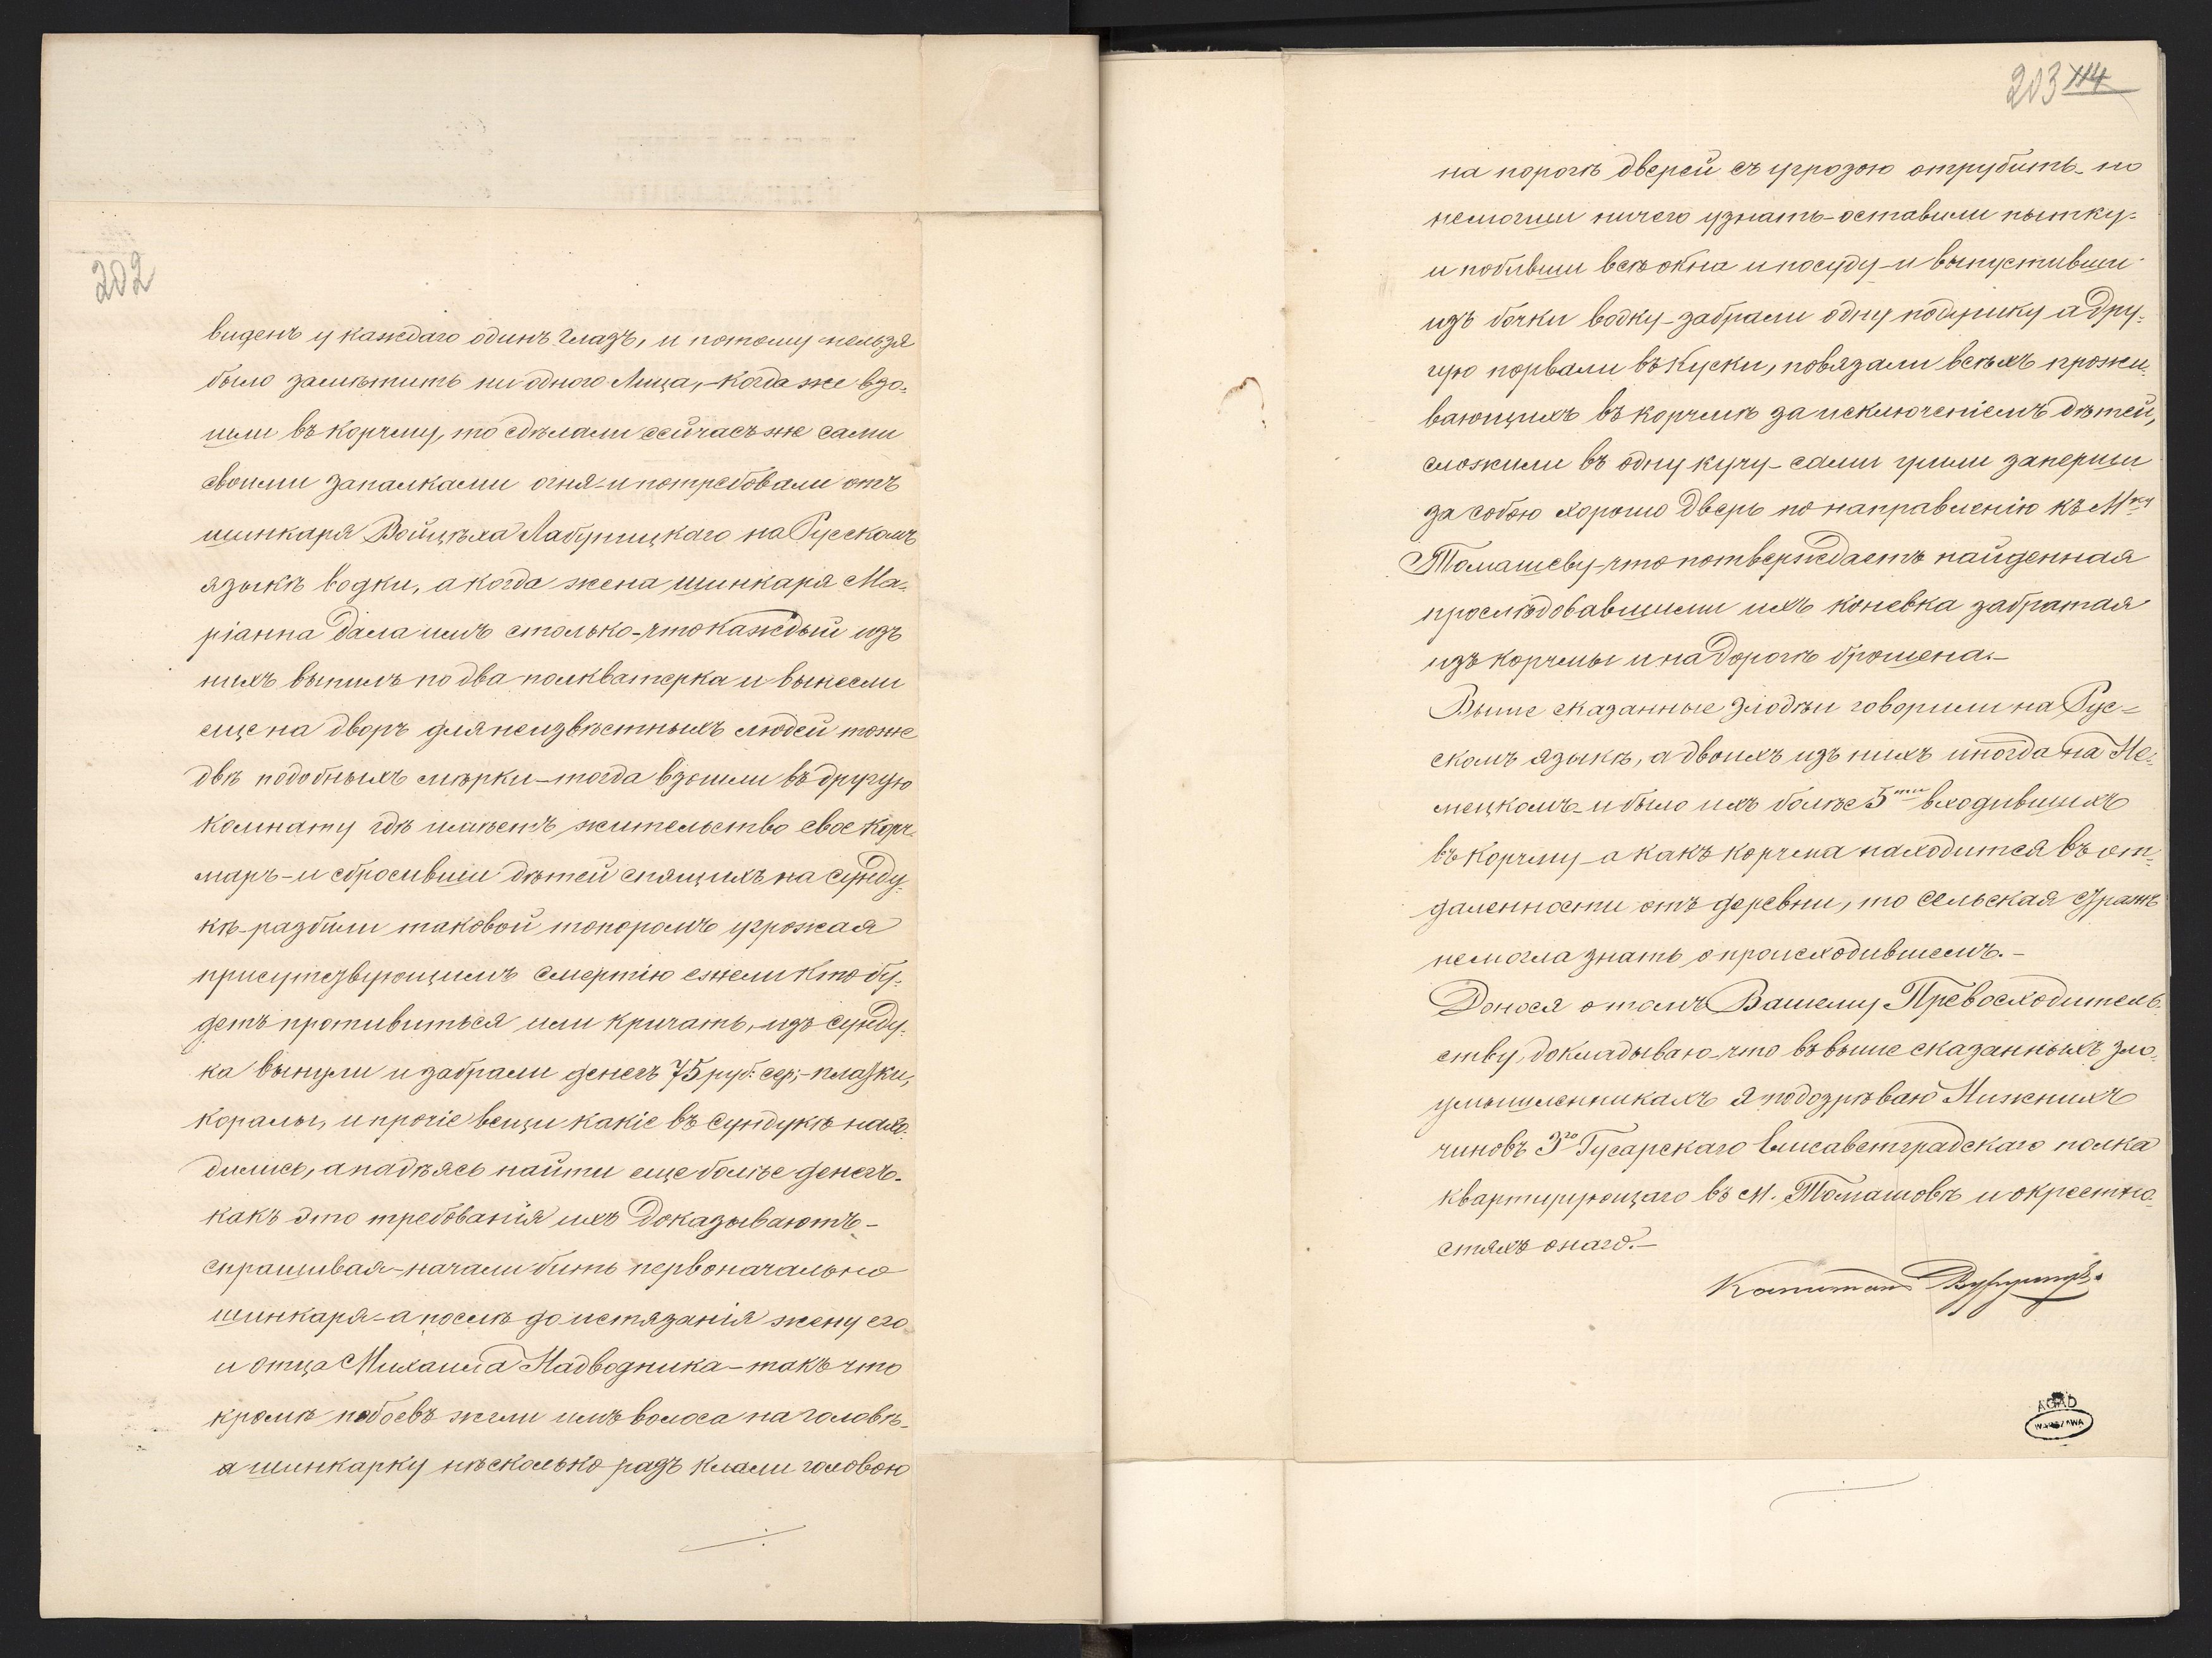 202
виденъ у каждаго одинъ глазъ, и потому нельзя
было замѣтить ни одного Лица, - когда же взо-
шли въ корчму, то сдѣлали сейчасъ же сами
своими запалками огня - и потребовали отъ
шинкаря Войцѣха Лабуницкаго на Русскомъ
языкѣ водки, а когда жена шинкаря Ма-
ріанна дала имъ столько - что каждый изъ
нихъ выпилъ по два полкватерка и вынесли
еще на дворъ для неизвѣстныхъ людей тоже
двѣ подобныхъ мѣрки - тогда взошли въ другую
комнату гдѣ имѣетъ жительство свое корч-
маръ - и сбросивши дѣтей спящихъ на сунду-
кѣ - разбили таковой топоромъ угрожая
присутствующимъ смертію ежели кто бу-
детъ противиться или кричать, - изъ сунду-
ка вынули и забрали денегъ 75 руб: сер; - плахки,
коралы, и прочіе вещи какіе въ сундукѣ нахо-
дились, а надѣясь найти еще болѣе денегъ -
какъ это требованія ихъ доказываютъ -
спрашивая - начали бить первоначально
шинкаря - а послѣ до истязанія жену его
и отца Михаила Надводника - такъ что
кромѣ побоевъ жгли имъ волоса на головѣ -
а шинкарку нѣсколько разъ клали головою
203 114
на порогѣ дверей съ угрозою отрубить - но
немогши ничего узнать - оставили пытку -
и побивши всѣ окна и посуду - и выпустивши
изъ бочки водку - забрали одну подушку а дру-
гую порвали въ куски, повязали всѣхъ прожи-
вающихъ въ корчмѣ за исключеніемъ дѣтей,
сложили въ одну кучу - сами ушли заперши
за собою хорошо дверь по направленію къ Мку
Томашеву - что потверждаетъ найденная
прослѣдовавшими ихъ коневка забратая
изъ корчмы и на дорогѣ брошена. -
Выше сказанные злодѣи говорили на Рус-
скомъ языкѣ, а двоихъ изъ нихъ иногда на Не-
мецкомъ - и было ихъ болѣе 5ти входившихъ
въ корчму - а какъ корчма находится въ от-
даленности отъ деревни, то сельская стража
немогла знать о происходившемъ. -
Донося о томъ Вашему Превосходитель-
ству, докладываю - что въ выше сказанныхъ зло-
умышленникахъ я подозрѣваю Нижнихъ
чиновъ 3го Гусарскаго Елисаветградскаго полка
квартирующаго въ м. Томашовѣ и окрестно-
стяхъ онаго. -
Капитанъ
AGAD
WARSZAWA